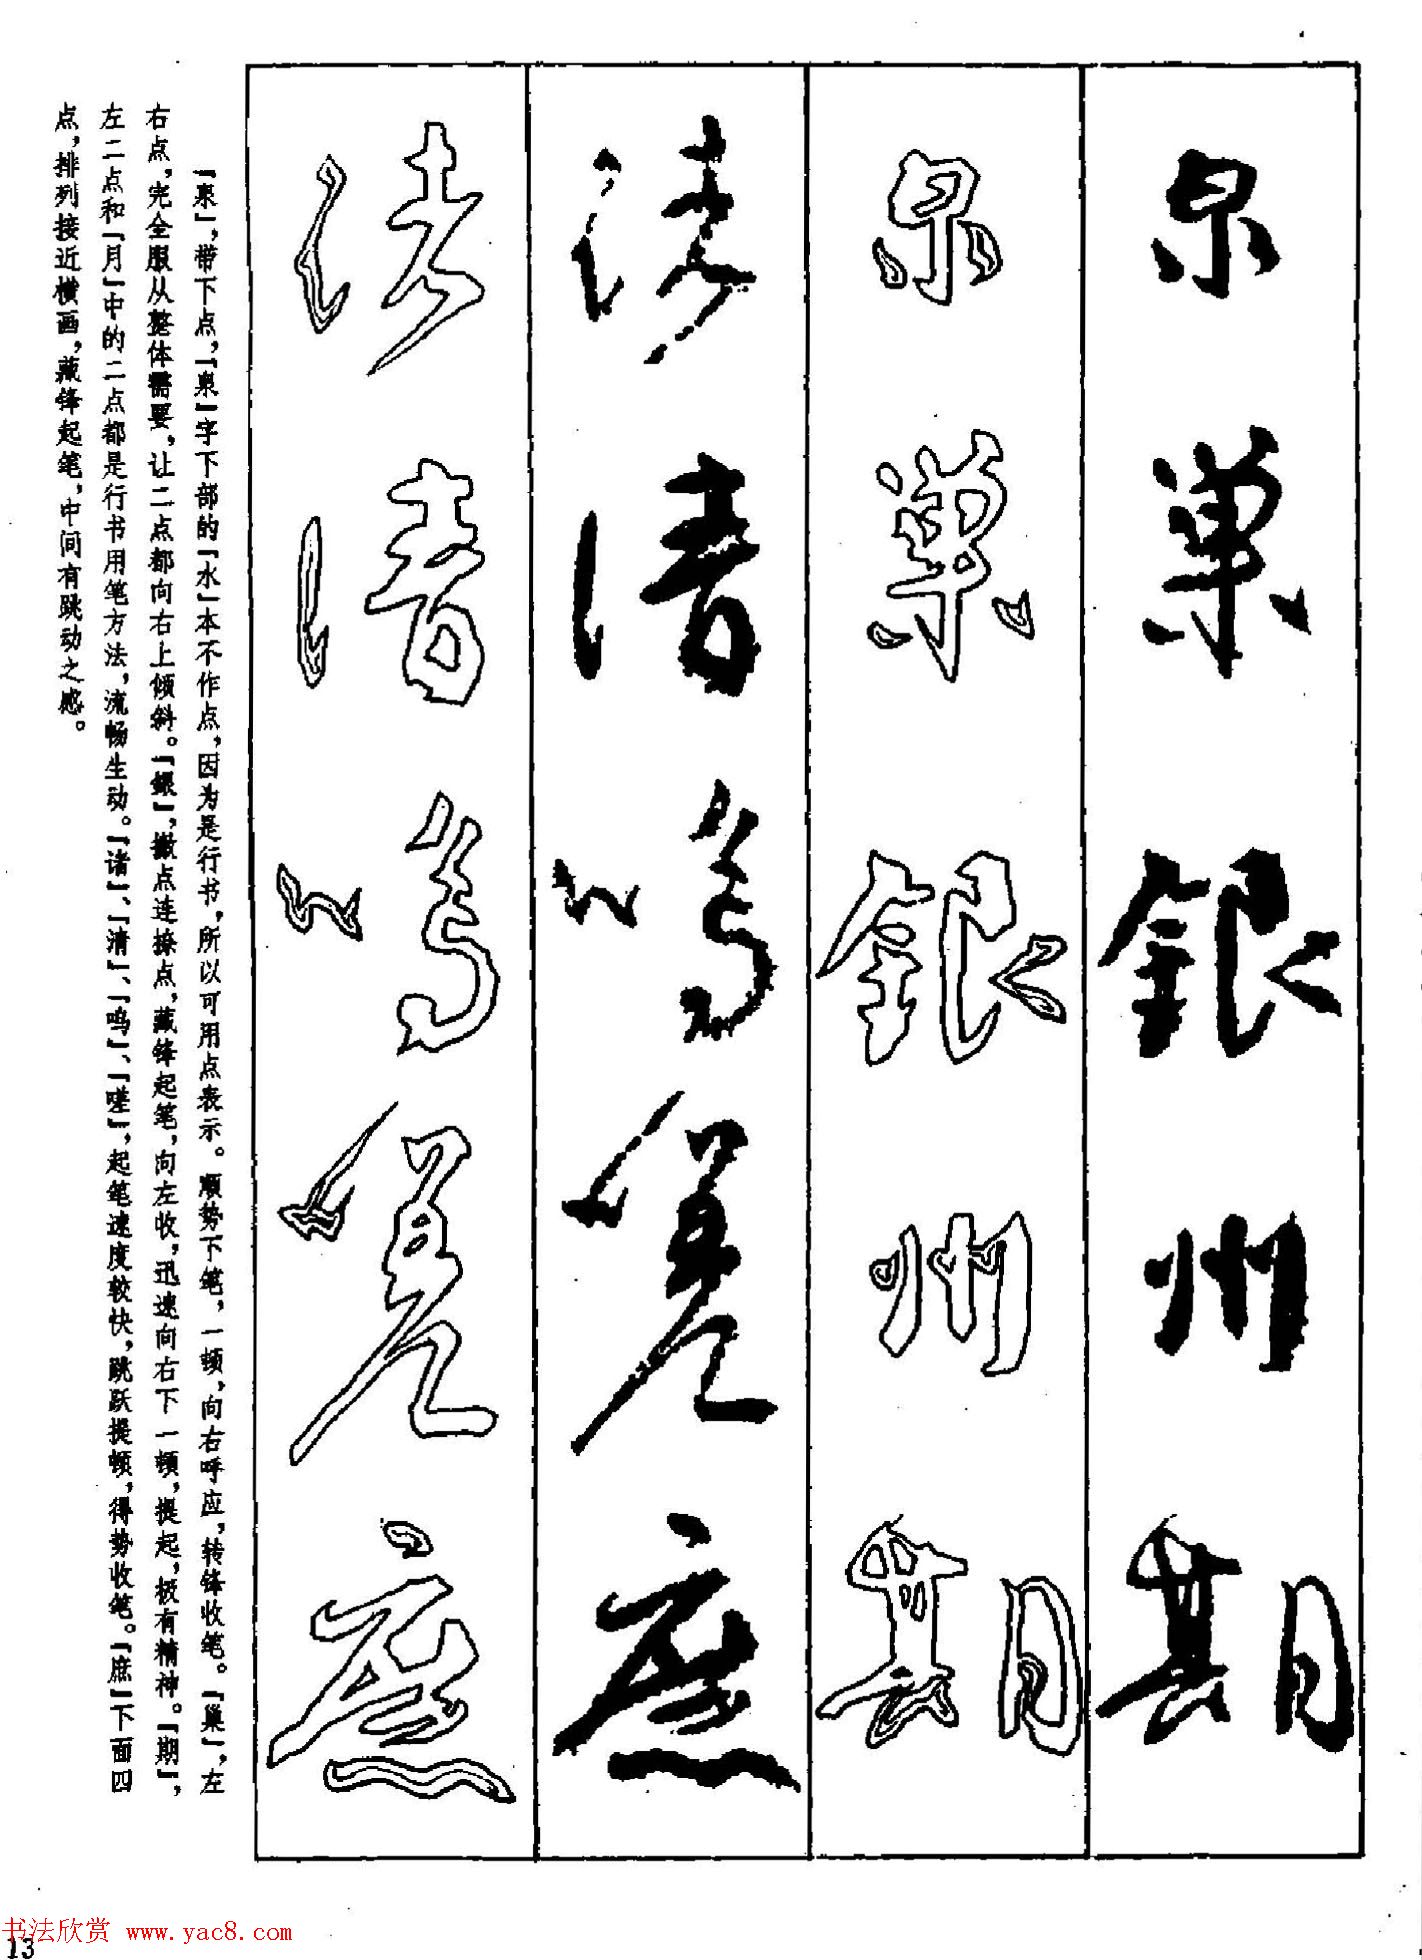 泉巢銀州期
泉巢銀州期
诸清呜嗟庶
诸清呜嗟庶
「泉」，带下点，「泉」字下部的「水」本不作点，因为是行书，所以可用点表示。顺势下笔，一顿，向右呼应，转锋收笔。「巢」，左
右点，完全服从整体需要，让二点都向右上倾斜。「銀」，撇点连捺点，藏锋起笔，向左收，迅速向右下一顿，提起，极有精神。「期」，
左二点和「月」中的二点都是行书用笔方法，流畅生动。「诸」、「清」、「呜」、「嗟」，起笔速度较快，跳跃提顿，得势收笔。「庶」下面四
点，排列接近横画，藏锋起笔，中间有跳动之感。
书法欣赏 www.yac8.com
13